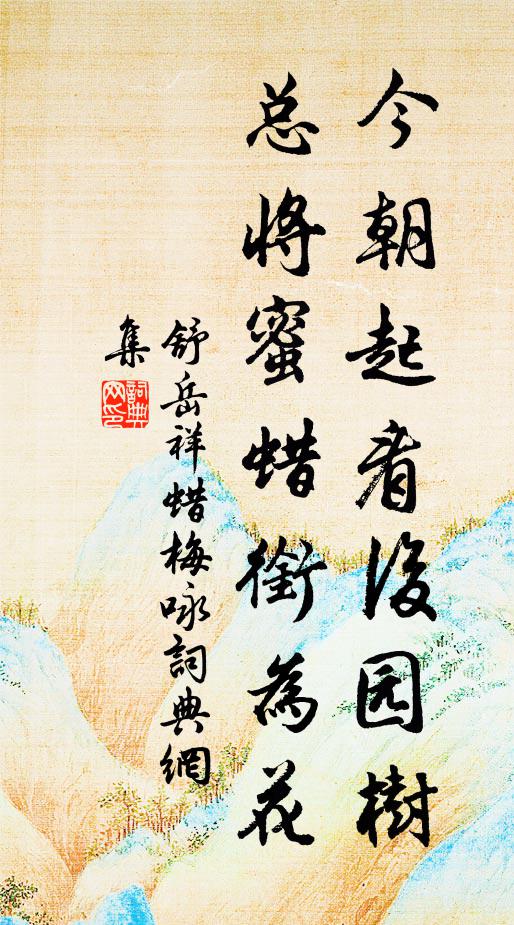 今朝起看後园樹
总將蜜蜡銜為花
舒岳祥蜡梅咏詞典網
集
詞典网印